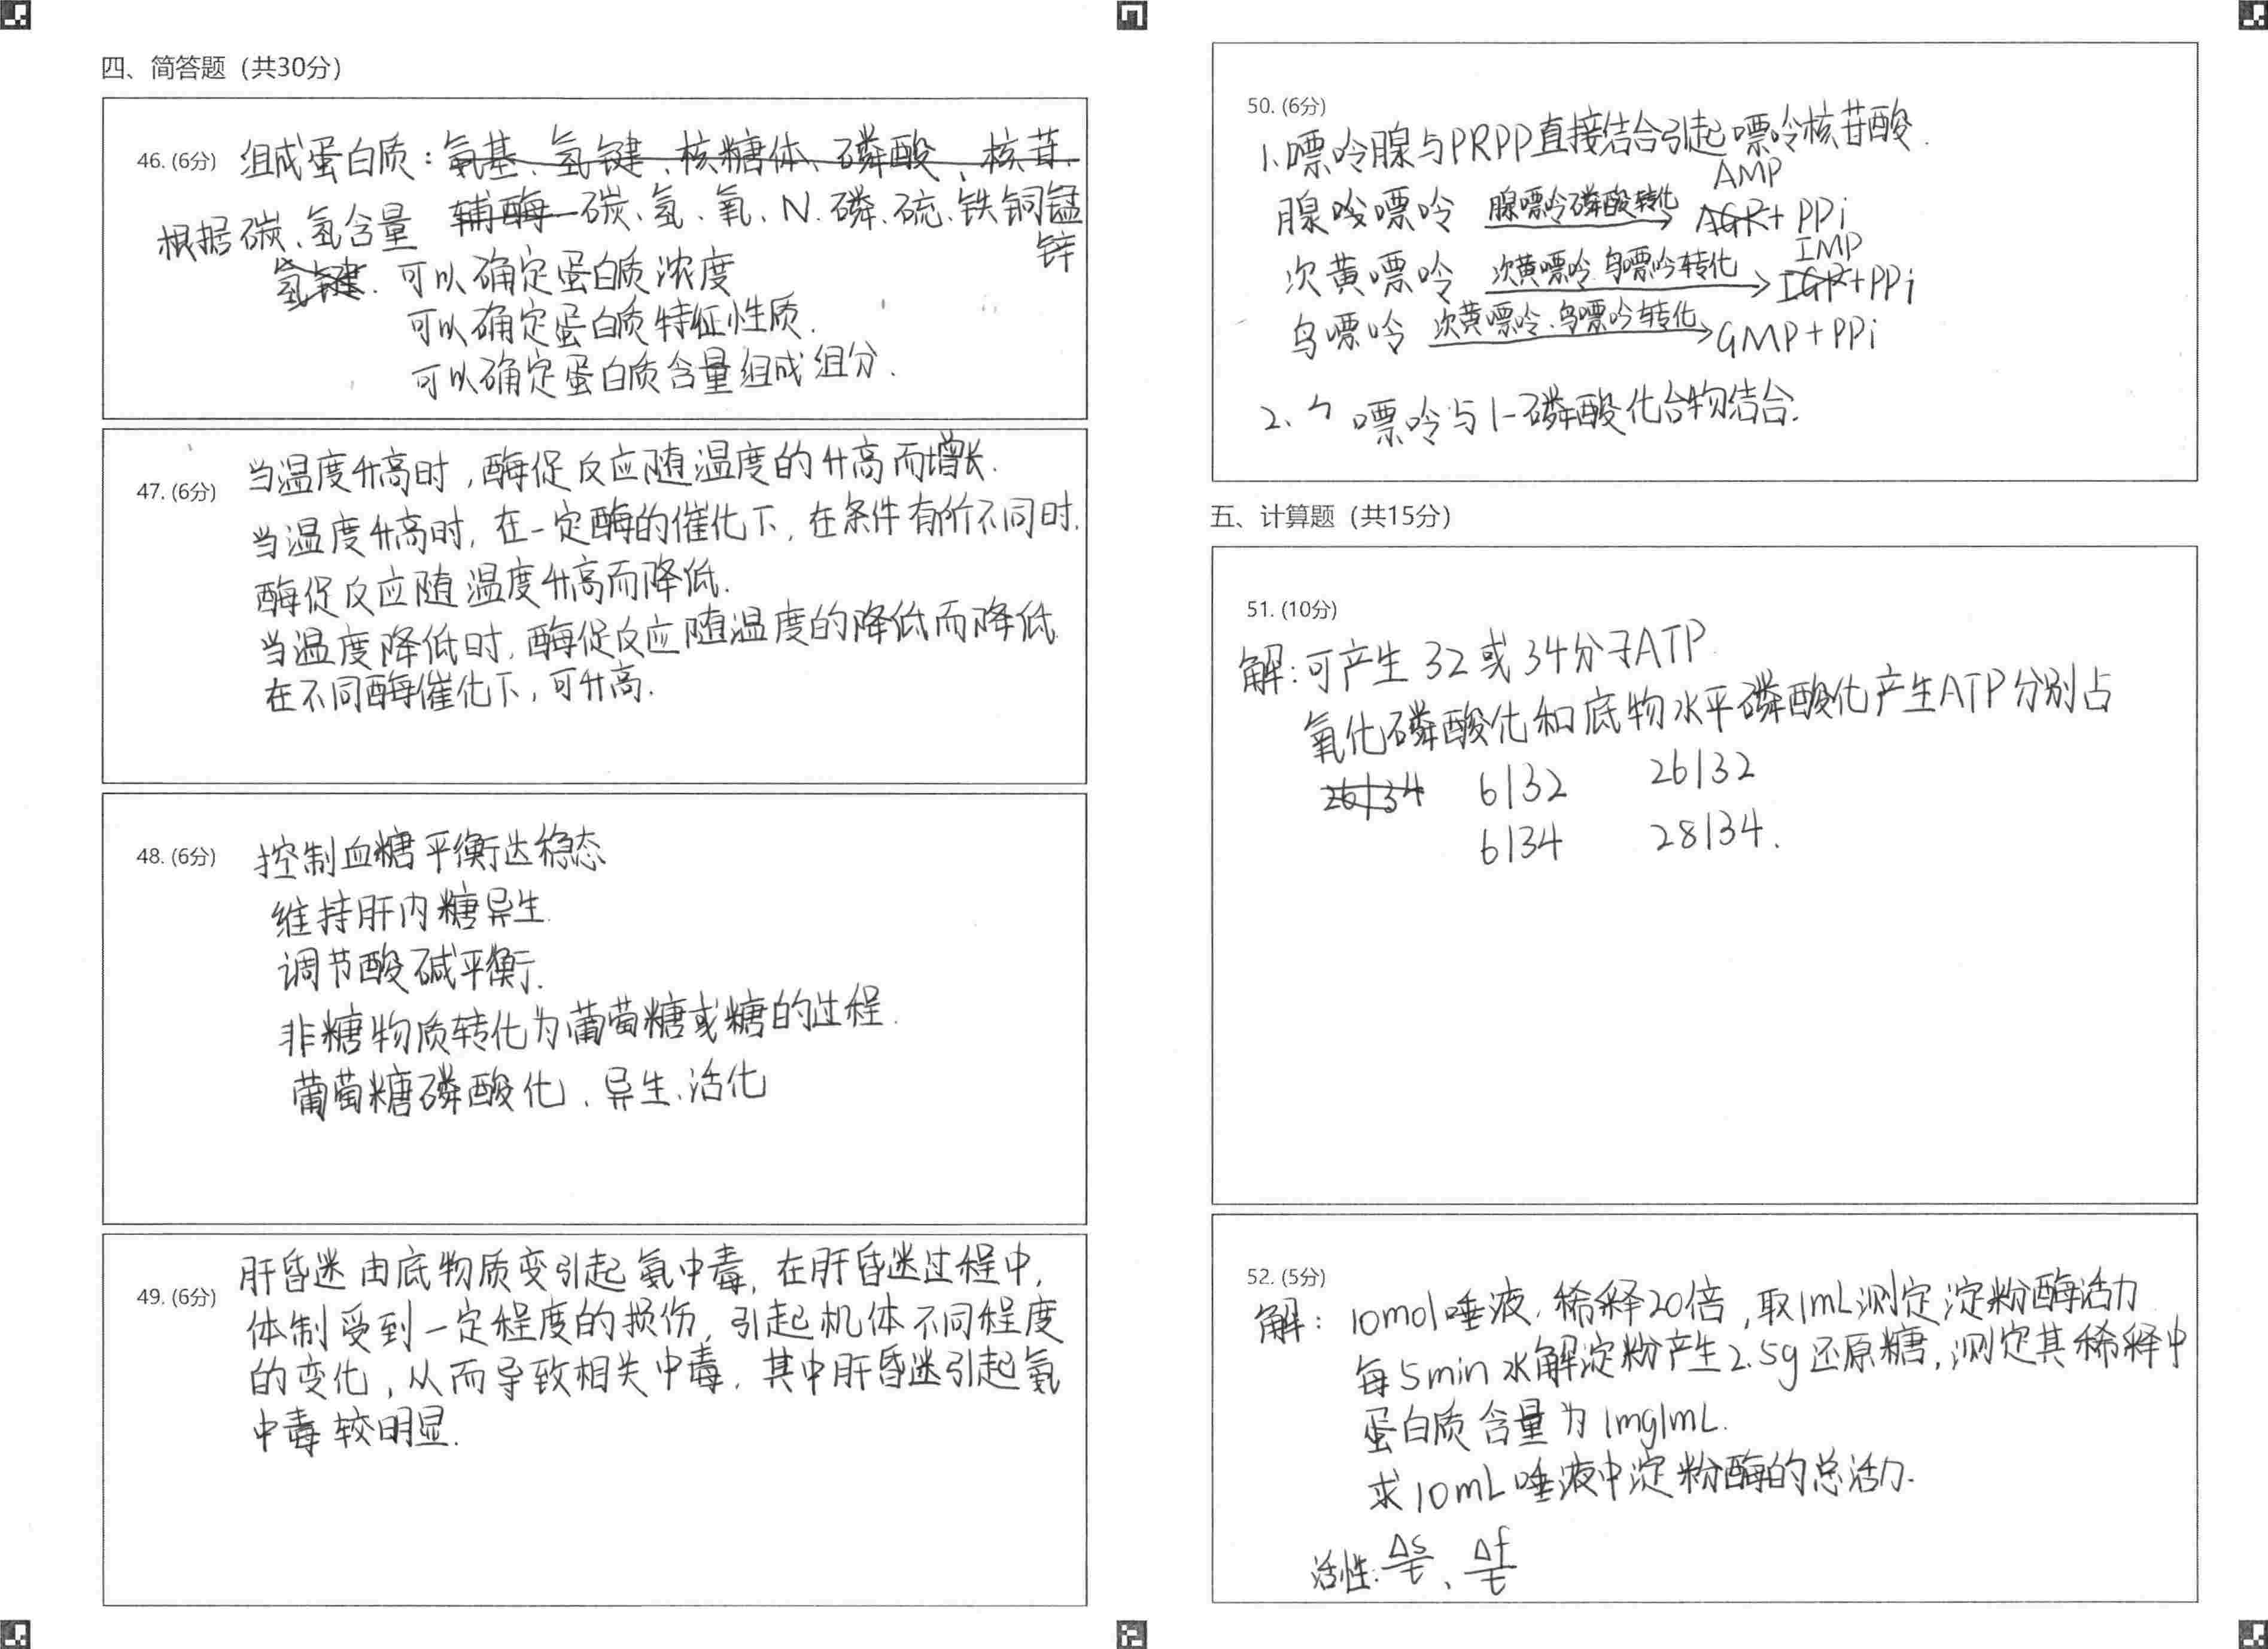 四、简答题（共30分）
46. (6分) 组成蛋白质：氨基、氢键、核糖体、磷酸、核苷、
辅酶 碳、氢、氧、N、磷、硫、铁铜锰
锌
根据碳、氢含量
氢键. 可以确定蛋白质浓度
可以确定蛋白质特征性质.
可以确定蛋白质含量组成组分.
47. (6分) 当温度升高时，酶促反应随温度的升高而增长.
当温度升高时，在一定酶的催化下，在条件有所不同时，
酶促反应随温度升高而降低.
当温度降低时，酶促反应随温度的降低而降低
在不同酶催化下，可升高.
48. (6分) 控制血糖平衡达稳态
维持肝内糖异生.
调节酸碱平衡.
非糖物质转化为葡萄糖或糖的过程.
葡萄糖磷酸化、异生、活化
49. (6分) 肝昏迷由底物质变引起氨中毒，在肝昏迷过程中，
体制受到一定程度的损伤，引起机体不同程度
的变化，从而导致相关中毒，其中肝昏迷引起氨
中毒较明显.
50. (6分)
1、嘌呤腺与PRPP直接结合引起嘌呤核苷酸.
腺嘌呤 腺嘌呤磷酸转化 AMP + PPi
次黄嘌呤 次黄嘌呤、鸟嘌呤转化 IMP +PPi
鸟嘌呤 次黄嘌呤、鸟嘌呤转化 GMP+PPi
2、嘌呤与1-磷酸化合物结合.
五、计算题（共15分）
51. (10分)
解：可产生32或34分子ATP.
氧化磷酸化和底物水平磷酸化产生ATP分别占
26/34 6/32 26/32
6/34 28/34.
52. (5分)
解： 10mol唾液，稀释20倍，取1mL测定淀粉酶活力
每5min水解淀粉产生2.5g还原糖，测定其稀释中
蛋白质含量为1mg/mL.
求10mL唾液中淀粉酶的总活力.
活性：Δs/t、Δf/t